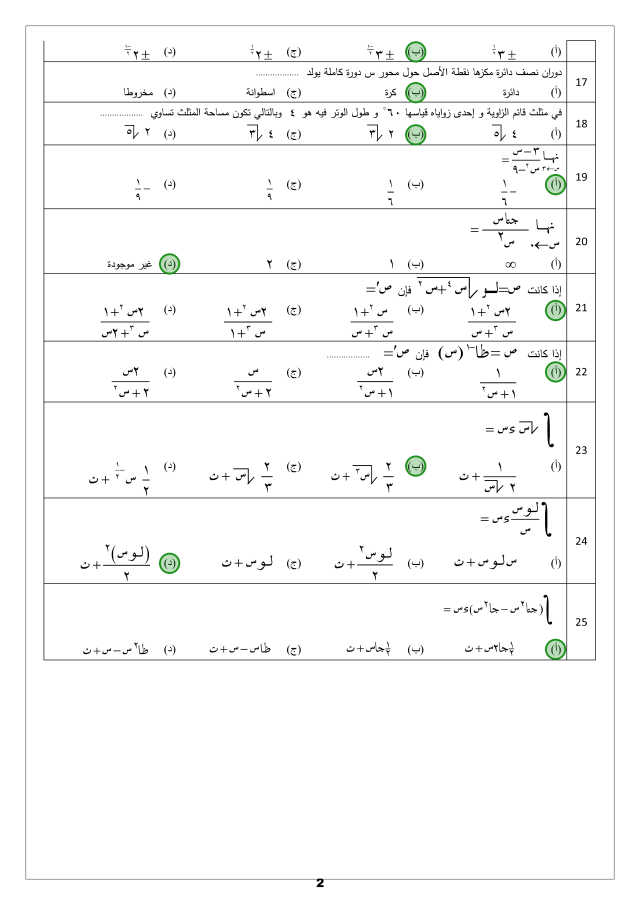 (أ) ± ٣^(١/٢) (ب) ± ٣^(−١/٢) (ج) ± ٢^(١/٢) (د) ± ٢^(−١/٢)
17 دوران نصف دائرة مكزها نقطة الأصل حول محور س دورة كاملة يولد ..................
(أ) دائرة (ب) كرة (ج) اسطوانة (د) مخروطا
18 في مثلث قائم الزاوية و إحدى زواياه قياسها ٦٠° و طول الوتر فيه هو ٤ وبالتالي تكون مساحة المثلث تساوي ..................
(أ) ٤ √٥ (ب) ٢ √٣ (ج) ٤ √٣ (د) ٢ √٥
19 نهـا س←٣ (٣−س)/(س^٢−٩) =
(أ) −١/٦ (ب) ١/٦ (ج) ١/٩ (د) −١/٩
20 نهـا س←٠ جتاس/س^٢ =
(أ) ∞ (ب) ١ (ج) ٢ (د) غير موجودة
21 إذا كانت ص=لـو √(س^٤+س^٢) فإن ص′=
(أ) (٢س^٢+١)/(س^٣+س) (ب) (س^٢+١)/(س^٣+س) (ج) (٢س^٢+١)/(س^٣+١) (د) (٢س^٢+١)/(س^٣+٢س)
22 إذا كانت ص =ظا^−١(س) فإن ص′= ..................
(أ) ١/(١+س^٢) (ب) ٢س/(١+س^٢) (ج) س/(٢+س^٢) (د) ٢س/(٢+س^٢)
23 ∫ √س ءس =
(أ) ١/(٢√س) + ث (ب) ٢/٣ √س^٣ + ث (ج) ٢/٣ √س + ث (د) ١/٢ س^(−١/٢) + ث
24 ∫ لـوس/س ءس =
(أ) س لـوس + ث (ب) لـوس^٢/٢ + ث (ج) لـوس + ث (د) (لـوس)^٢/٢ + ث
25 ∫(جتا^٢س−جا^٢س)ءس =
(أ) ١/٢جا٢س + ث (ب) ١/٢جاس + ث (ج) ظاس−س+ث (د) ظا^٢س−س+ث
2